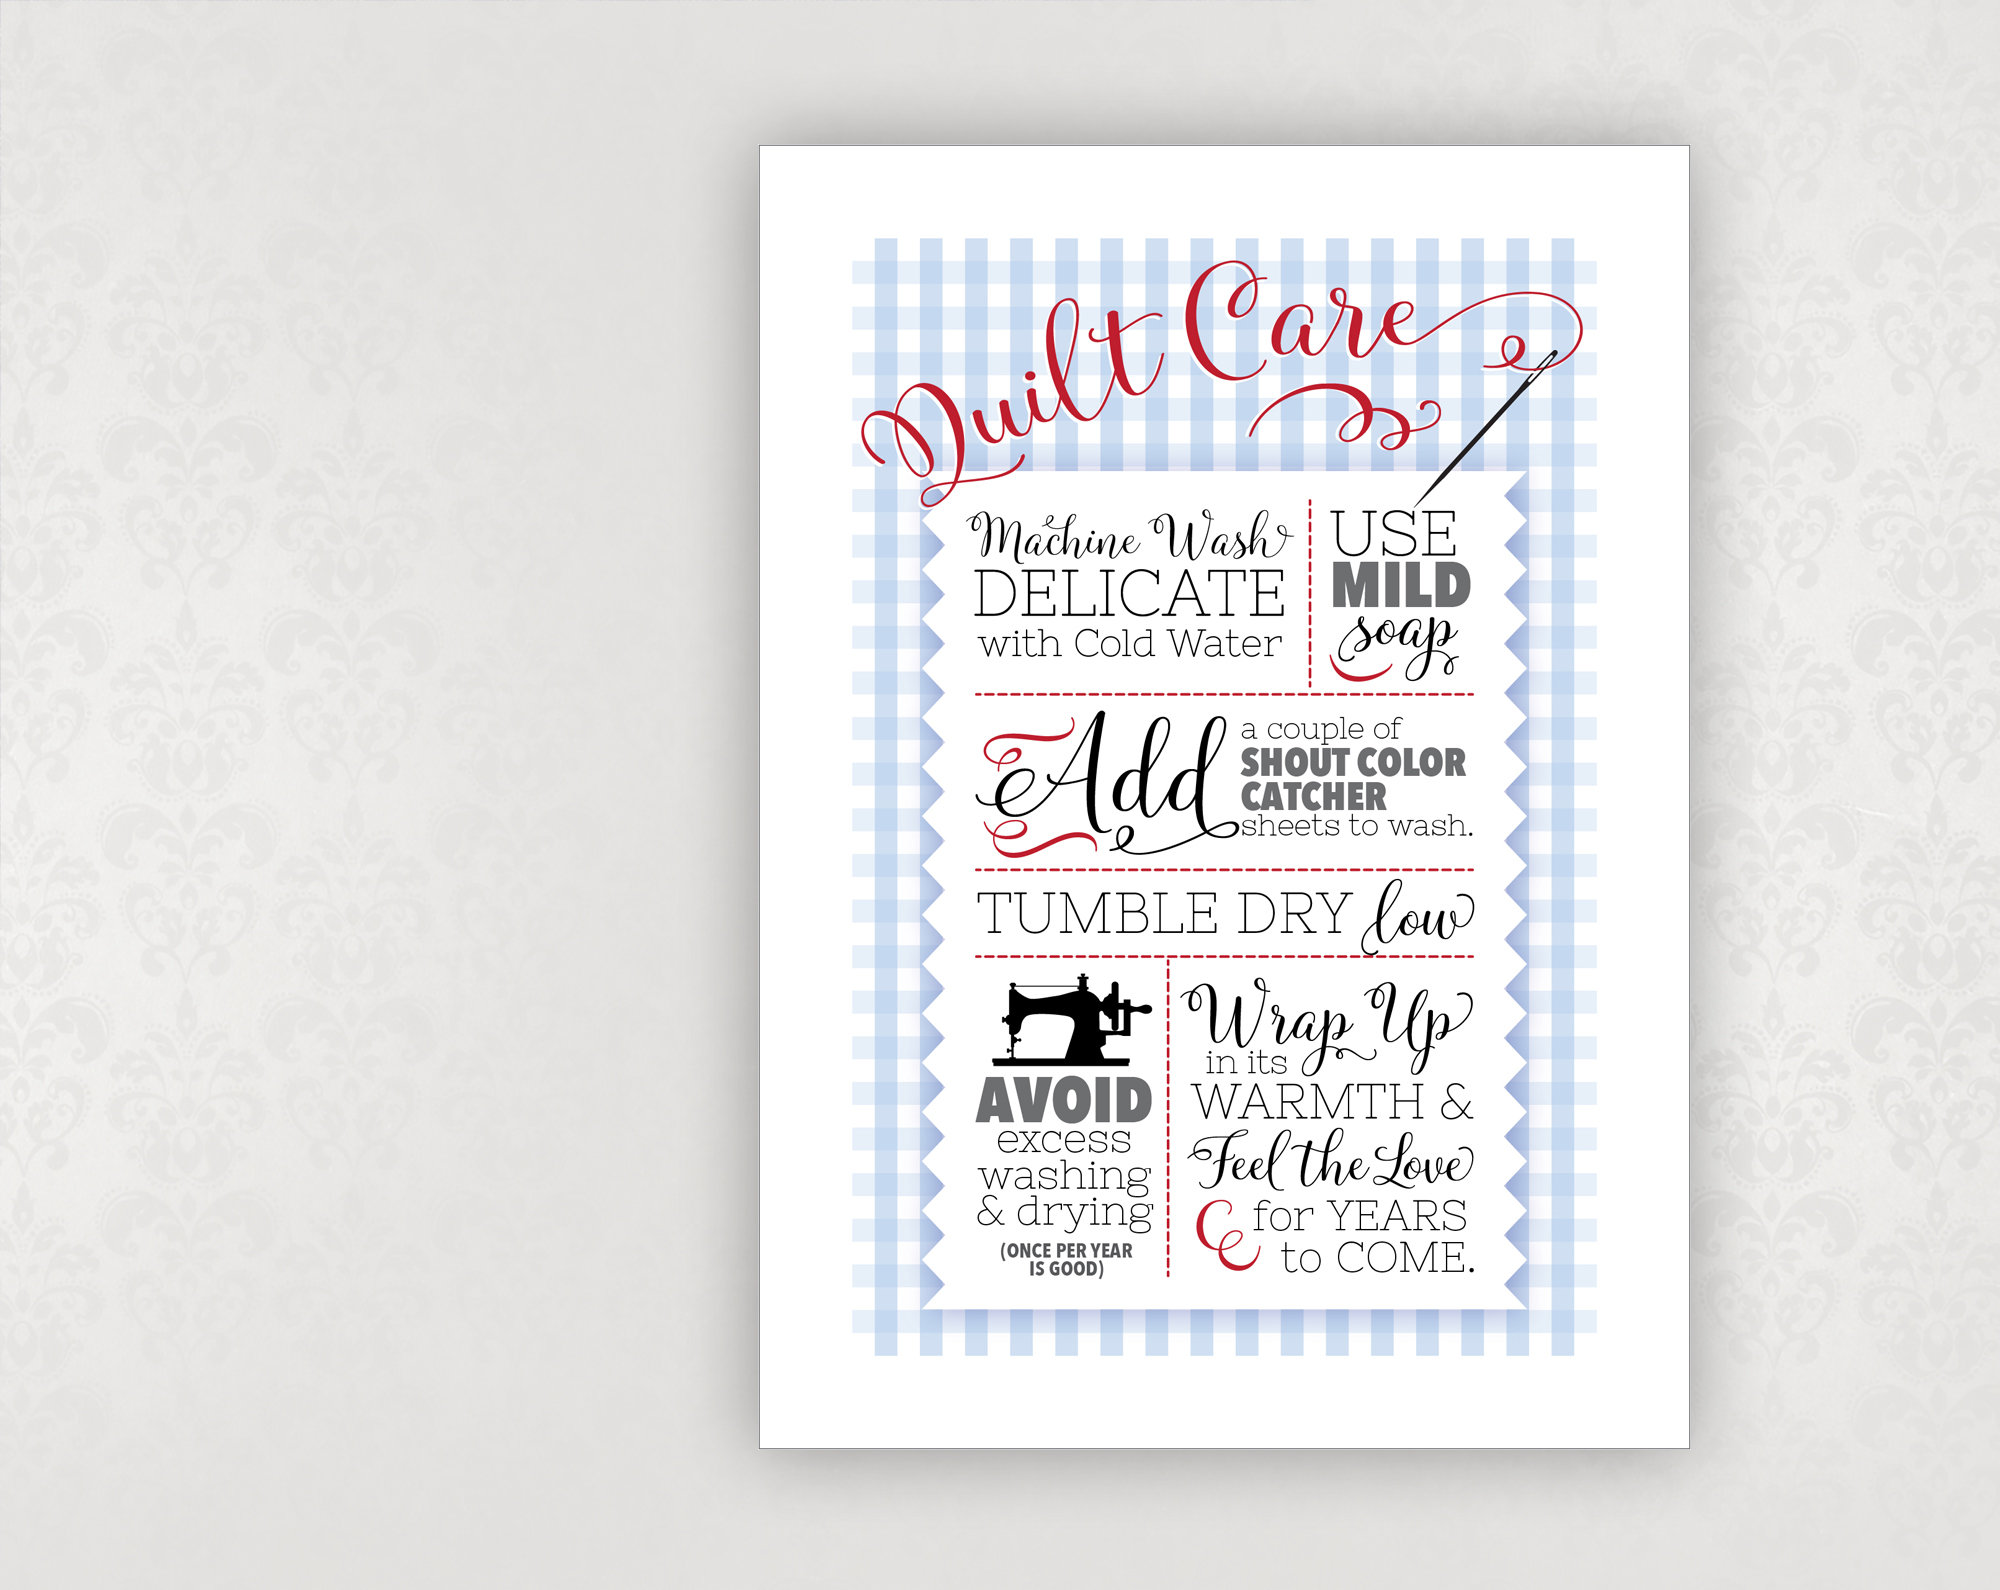 Quilt Care
Machine Wash
DELICATE
with Cold Water
USE
MILD
soap
Add
a couple of
SHOUT COLOR
CATCHER
sheets to wash.
TUMBLE DRY low
AVOID
excess
washing
& drying
(ONCE PER YEAR
IS GOOD)
Wrap Up
in its
WARMTH &
Feel the Love
for YEARS
to COME.